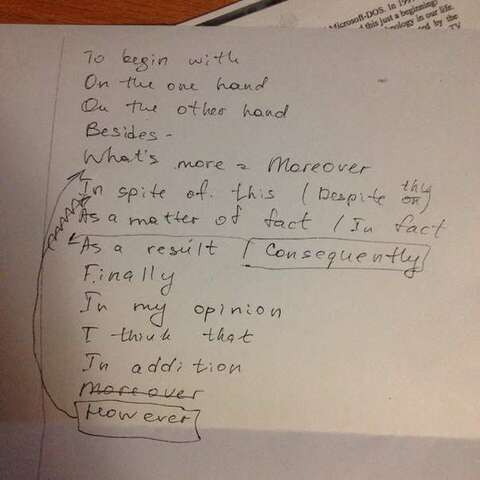 Microsoft-DOS. In 199
this just a beginning!
nology in our life.
ed by the
TV
To begin with
On the one hand
On the other hand
Besides -
What's more = Moreover
In spite of this (Despite this
As a matter of fact / In fact
As a result / Consequently
Finally
In my opinion
I think that
In addition
Moreover
However